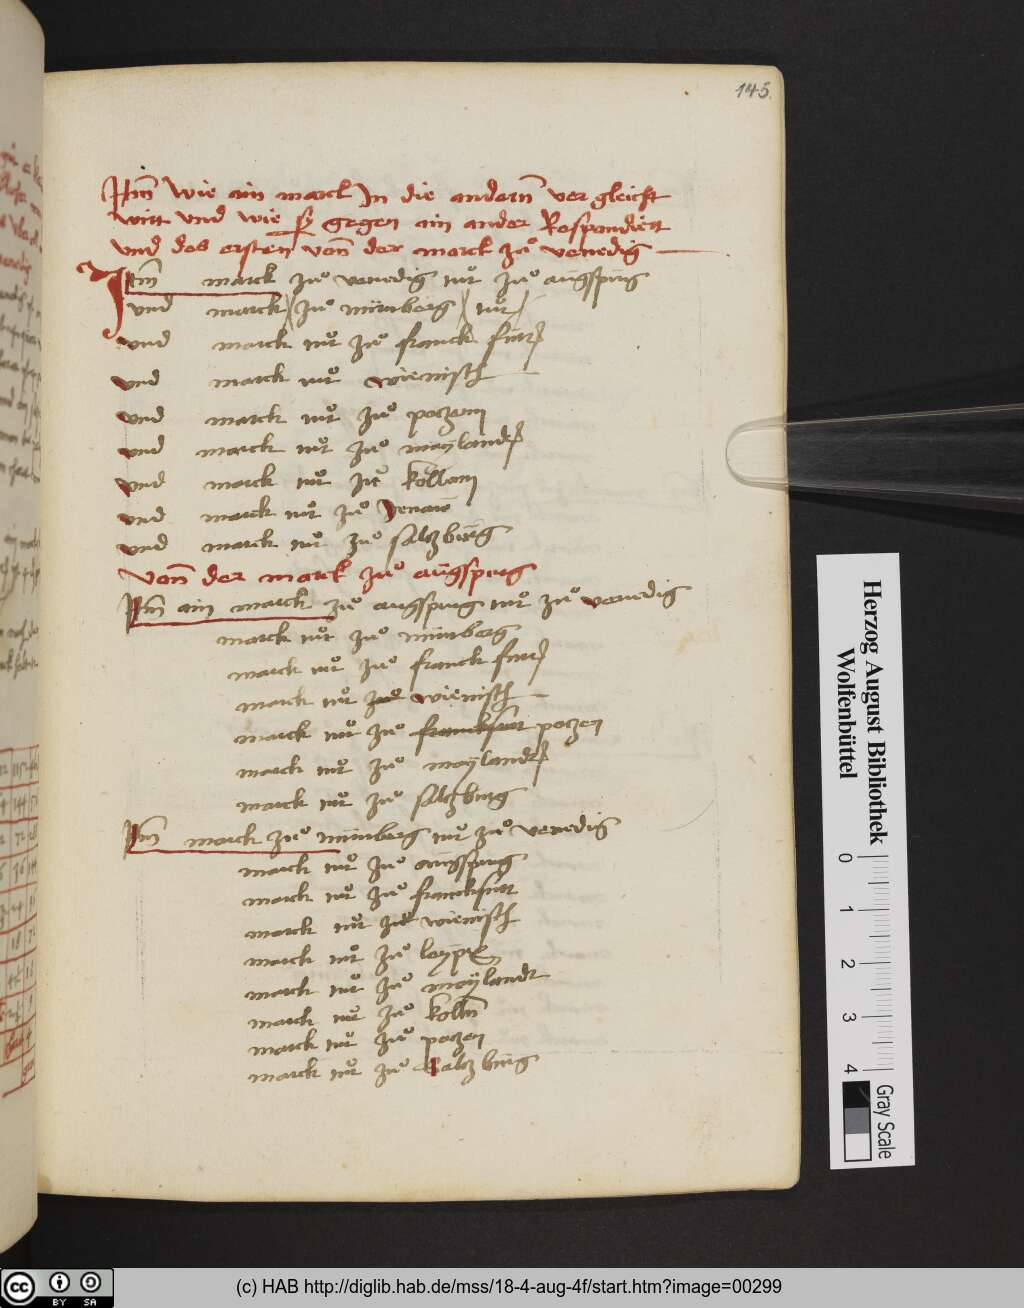 145.
Itm wie ain marck In die andern̄ vergleicht
wirt vnd wie sy gegen ain ander Respondiert
vnd des ersten von der marck zů venedig
Itm marck zů venedig wr̊ zů augspurg
vnd marck zů nürnberg wr̊
vnd marck wr̊ zů franckfurt
vnd marck wr̊ wienisch
vnd marck wr̊ zů poczenn
vnd marck wr̊ zů maylandt
vnd marck wr̊ zů köllann
vnd marck wr̊ zů Jenaw
vnd marck wr̊ zů salczburg
Von der marck zů augspurg
Itm ain marck zů augspurg wr̊ zů venedig
marck wr̊ zů nürnberg
marck wr̊ zů franckfurt
marck wr̊ zů wienisch
marck wr̊ zů franckfurt poczen
marck wr̊ zů maylandt
marck wr̊ zů salczburg
Itm marck zů nürnberg wr̊ zů venedig
marck wr̊ zů augspurg
marck wr̊ zů franckfurt
marck wr̊ zů wienisch
marck wr̊ zů leypcz
marck wr̊ zů maylandt
marck wr̊ zů kölln
marck wr̊ zů poczen
marck wr̊ zů salczburg
Herzog August Bibliothek
Wolfenbüttel
0 1 2 3 4
Gray Scale
cc BY SA
(c) HAB http://diglib.hab.de/mss/18-4-aug-4f/start.htm?image=00299